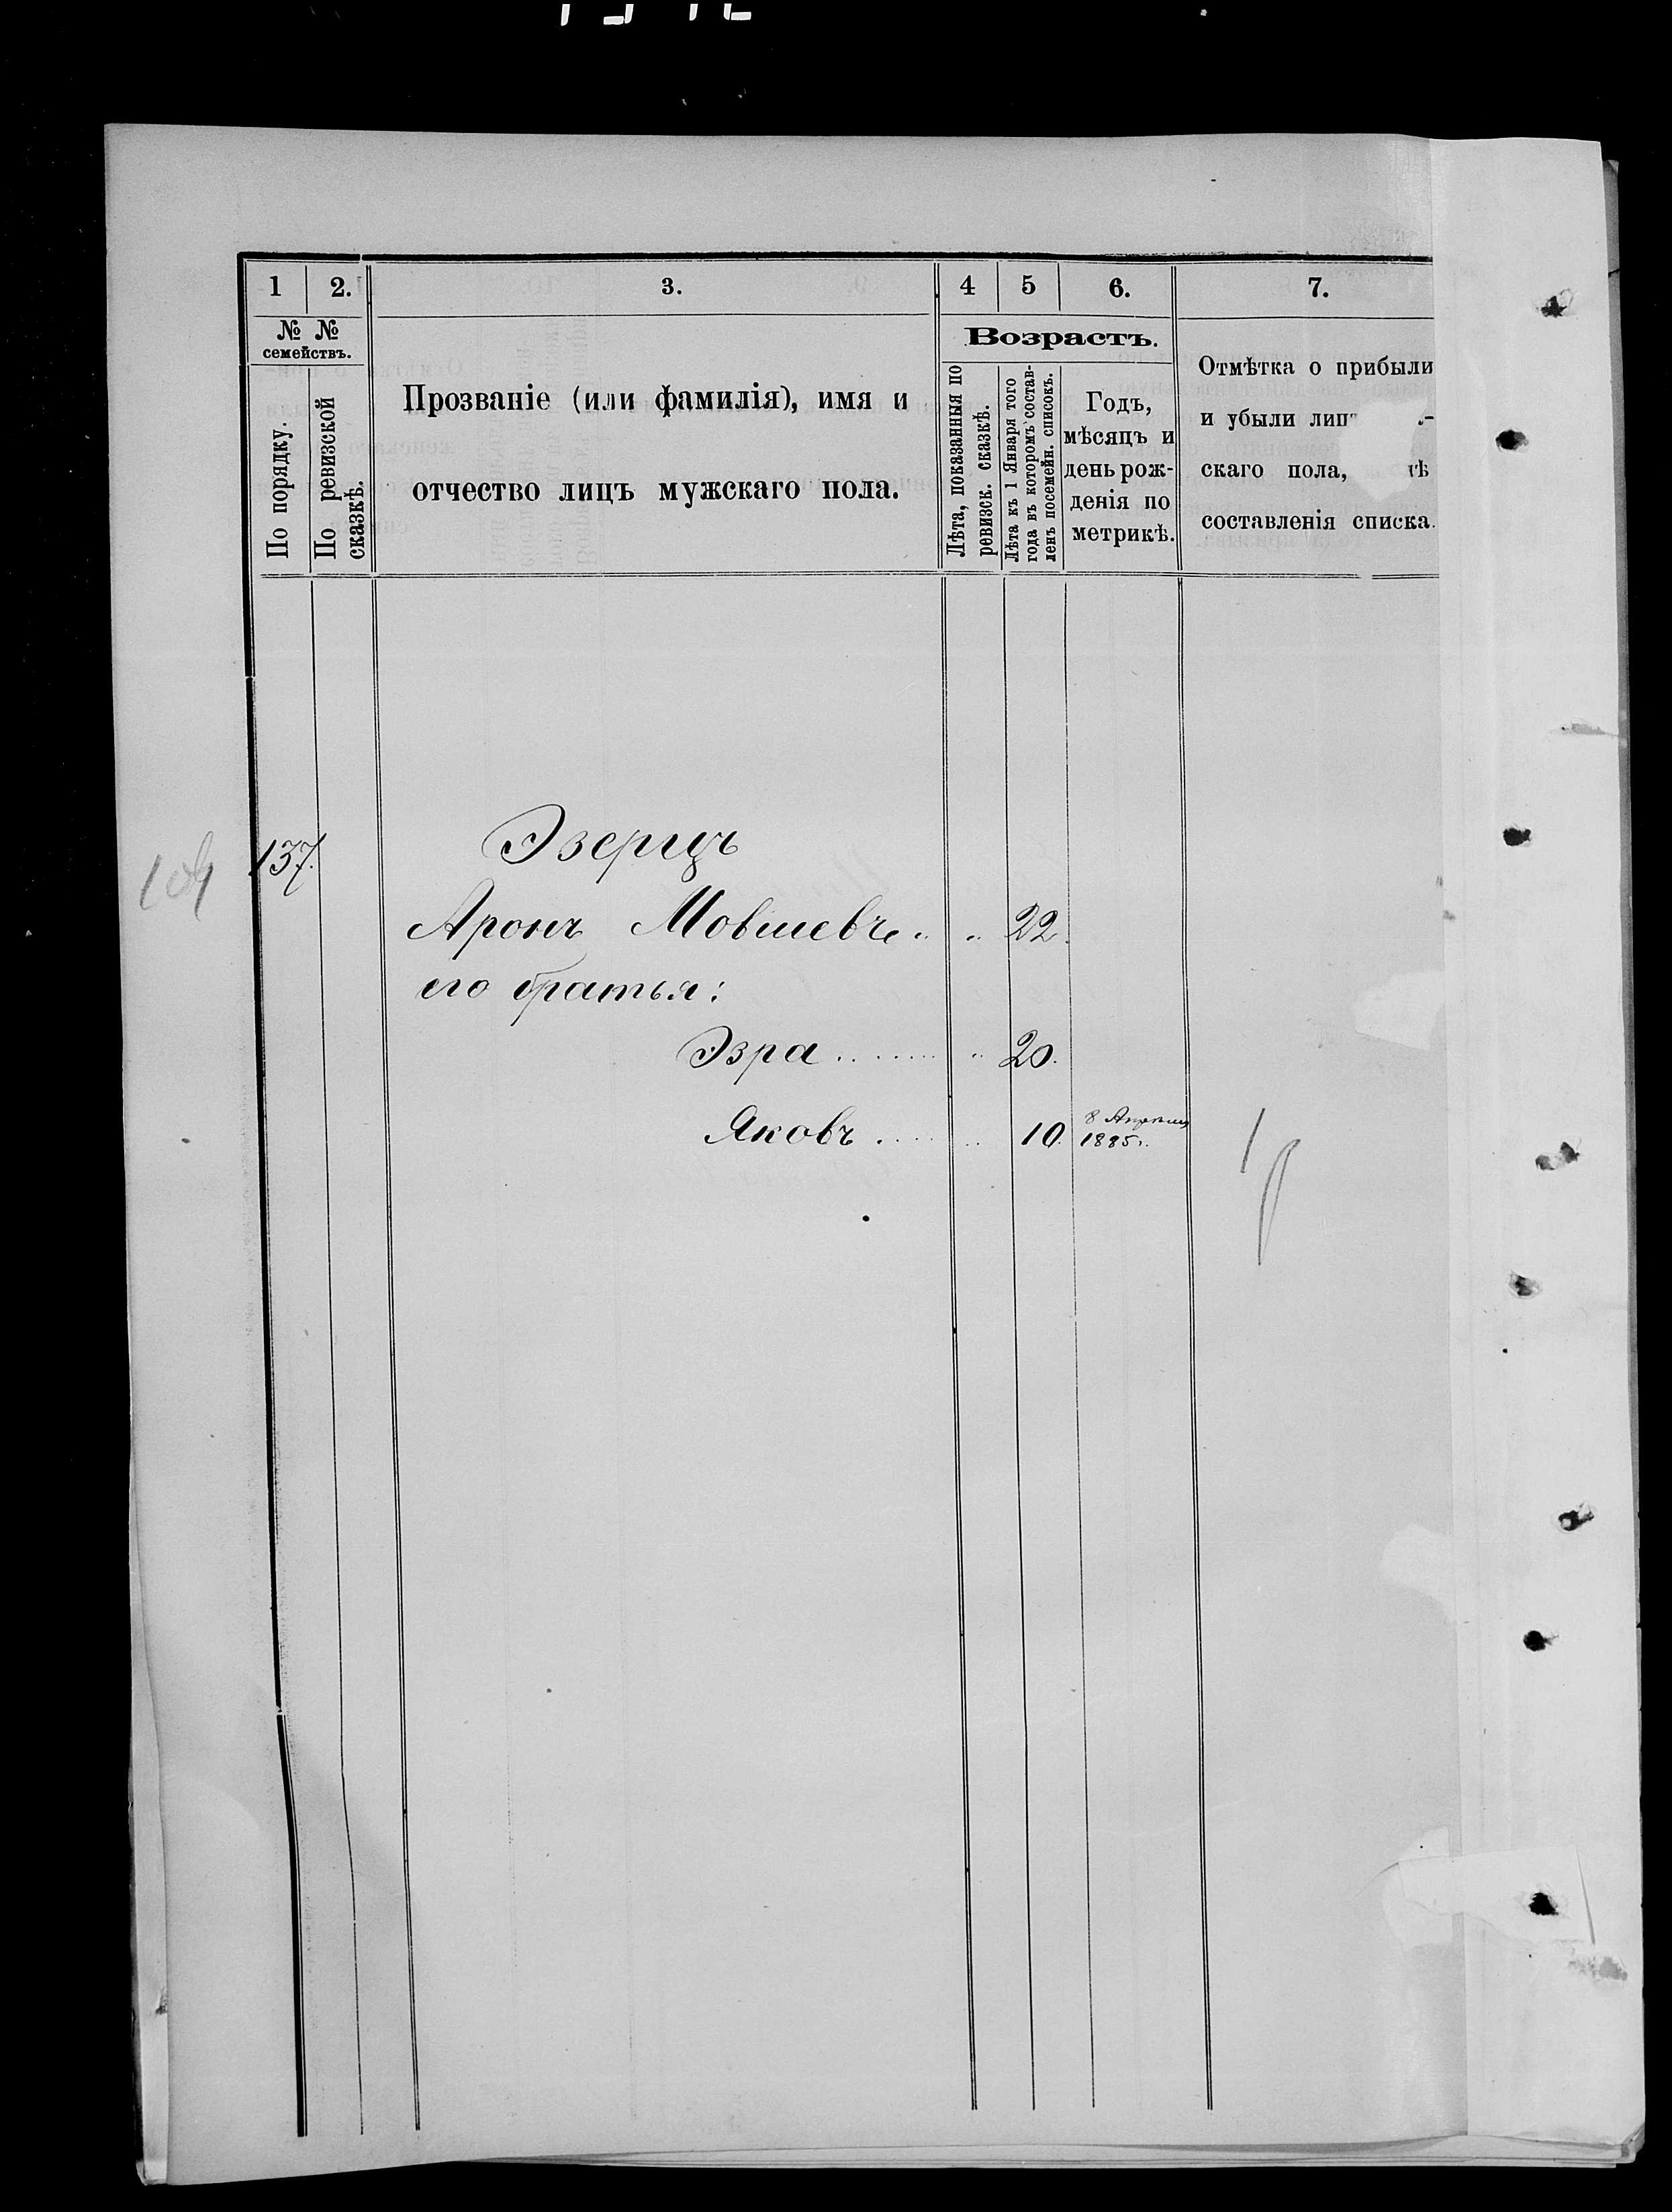 1 2. 3. 4 5 6. 7.
№ №
семействъ.
По порядку.
По ревизской
сказкѣ.
Прозваніе (или фамилія), имя и
отчество лицъ мужскаго пола.
Возрастъ.
Лѣта, показанныя по
ревизск. сказкѣ.
Лѣта къ 1 Января того
года въ которомъ состав-
ленъ посемейн. списокъ.
Годъ,
мѣсяцъ и
день рож-
денія по
метрикѣ.
Отмѣтка о прибыли
и убыли
скаго пола,
составленія списка.
137. Эзерцъ
Аронъ Мовшевъ 22.
его братья:
Эзра 20.
Яковъ 10. 8 Апрѣля
1885 г.